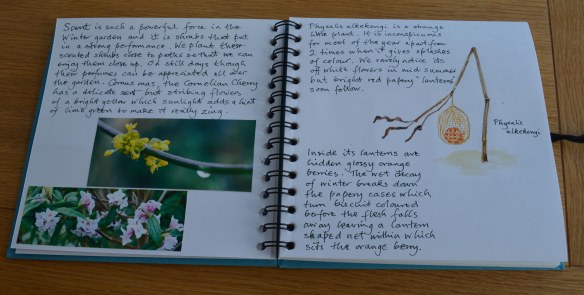 Scent is such a powerful force in the
Winter garden and it is shrubs that put
in a strong performance. We plant these
scented shrubs close to paths so that we can
enjoy them close up. On still days though
their perfumes can be appreciated all over
the garden. Cornus mas, the Cornelian Cherry
has a delicate scent but striking flowers
of a bright yellow which sunlight adds a hint
of lime green to make it really zing.
Physalis alkekengi is a strange
little plant. It is inconspicuous
for most of the year apart from
2 times when it gives splashes
of colour. We rarely notice its
off white flowers in mid summer
but bright red papery lanterns
soon follow.
Physalis
alkekengi
Inside its lanterns are
hidden glossy orange
berries. The wet decay
of winter breaks down
the papery cases which
turn biscuit coloured
before the flesh falls
away leaving a lantern
shaped net within which
sits the orange berry.